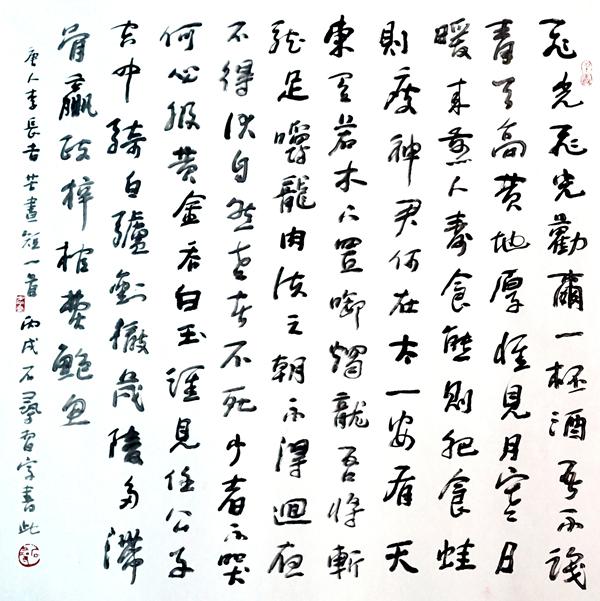 飛光飛光勸爾一杯酒吾不識
青天高黃地厚惟見月寒日
暖來煎人壽食熊則肥食蛙
則瘦神君何在太一安有天
東有若木下置啣燭龍吾將斬
龍足嚼龍肉使之朝不得迴夜
不得伏自然老者不死少者不哭
何必服黃金吞白玉誰見任公子
雲中騎白驢劉徹茂陵多滯
骨嬴政梓棺費鮑魚
唐人李長吉苦晝短一首 丙戌石尋習字書此